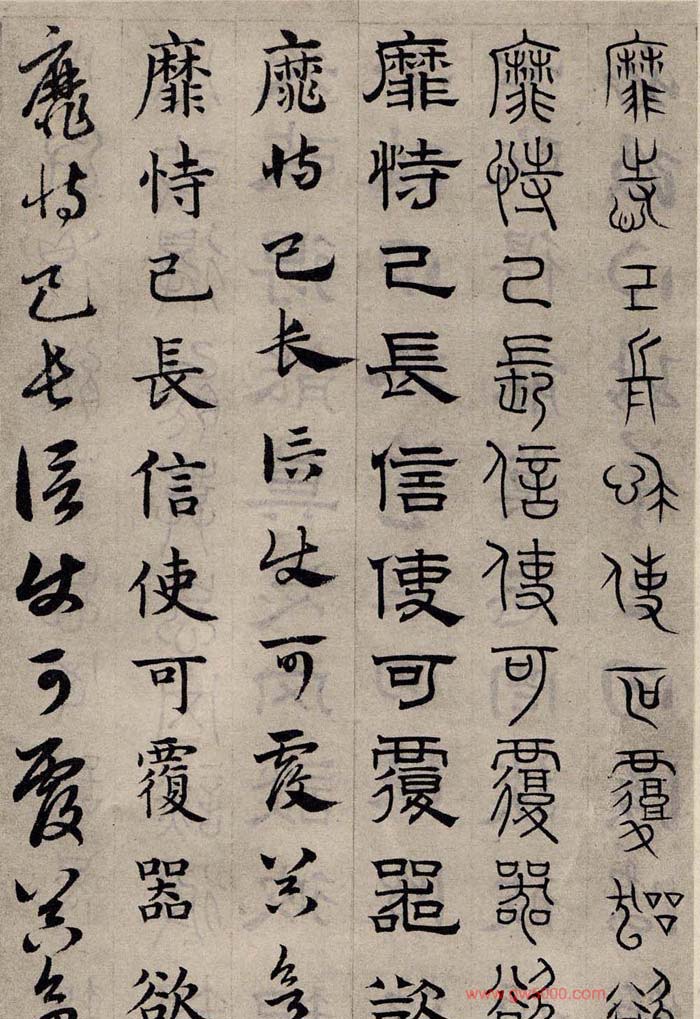 靡恃己長信使可覆器欲
靡恃己長信使可覆器欲
靡恃己長信使可覆器欲
靡恃己長信使可覆器
靡恃己長信使可覆器欲
靡恃己長信使可覆器